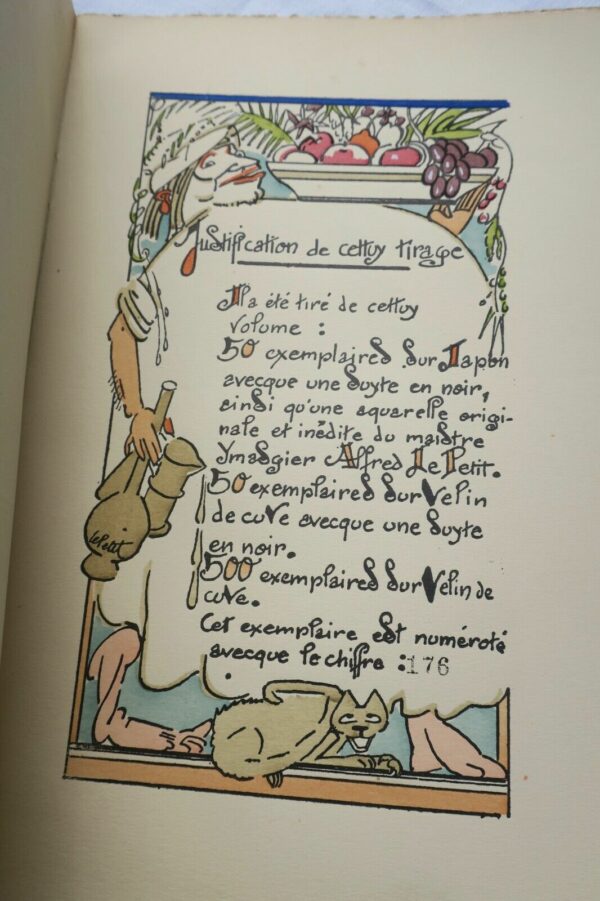 Justification de cettuy tirage
Il a été tiré de cettuy
volume :
50 exemplaires sur Japon
avecque une suyte en noir,
ainsi qu'une aquarelle origi-
nale et inédite du maistre
Ymasgier Alfred Le Petit.
50 exemplaires sur Velin
de cuve avecque une suyte
en noir.
500 exemplaires sur Velin de
cuve.
Cet exemplaire est numéroté
avecque le chiffre : 176
LePetit